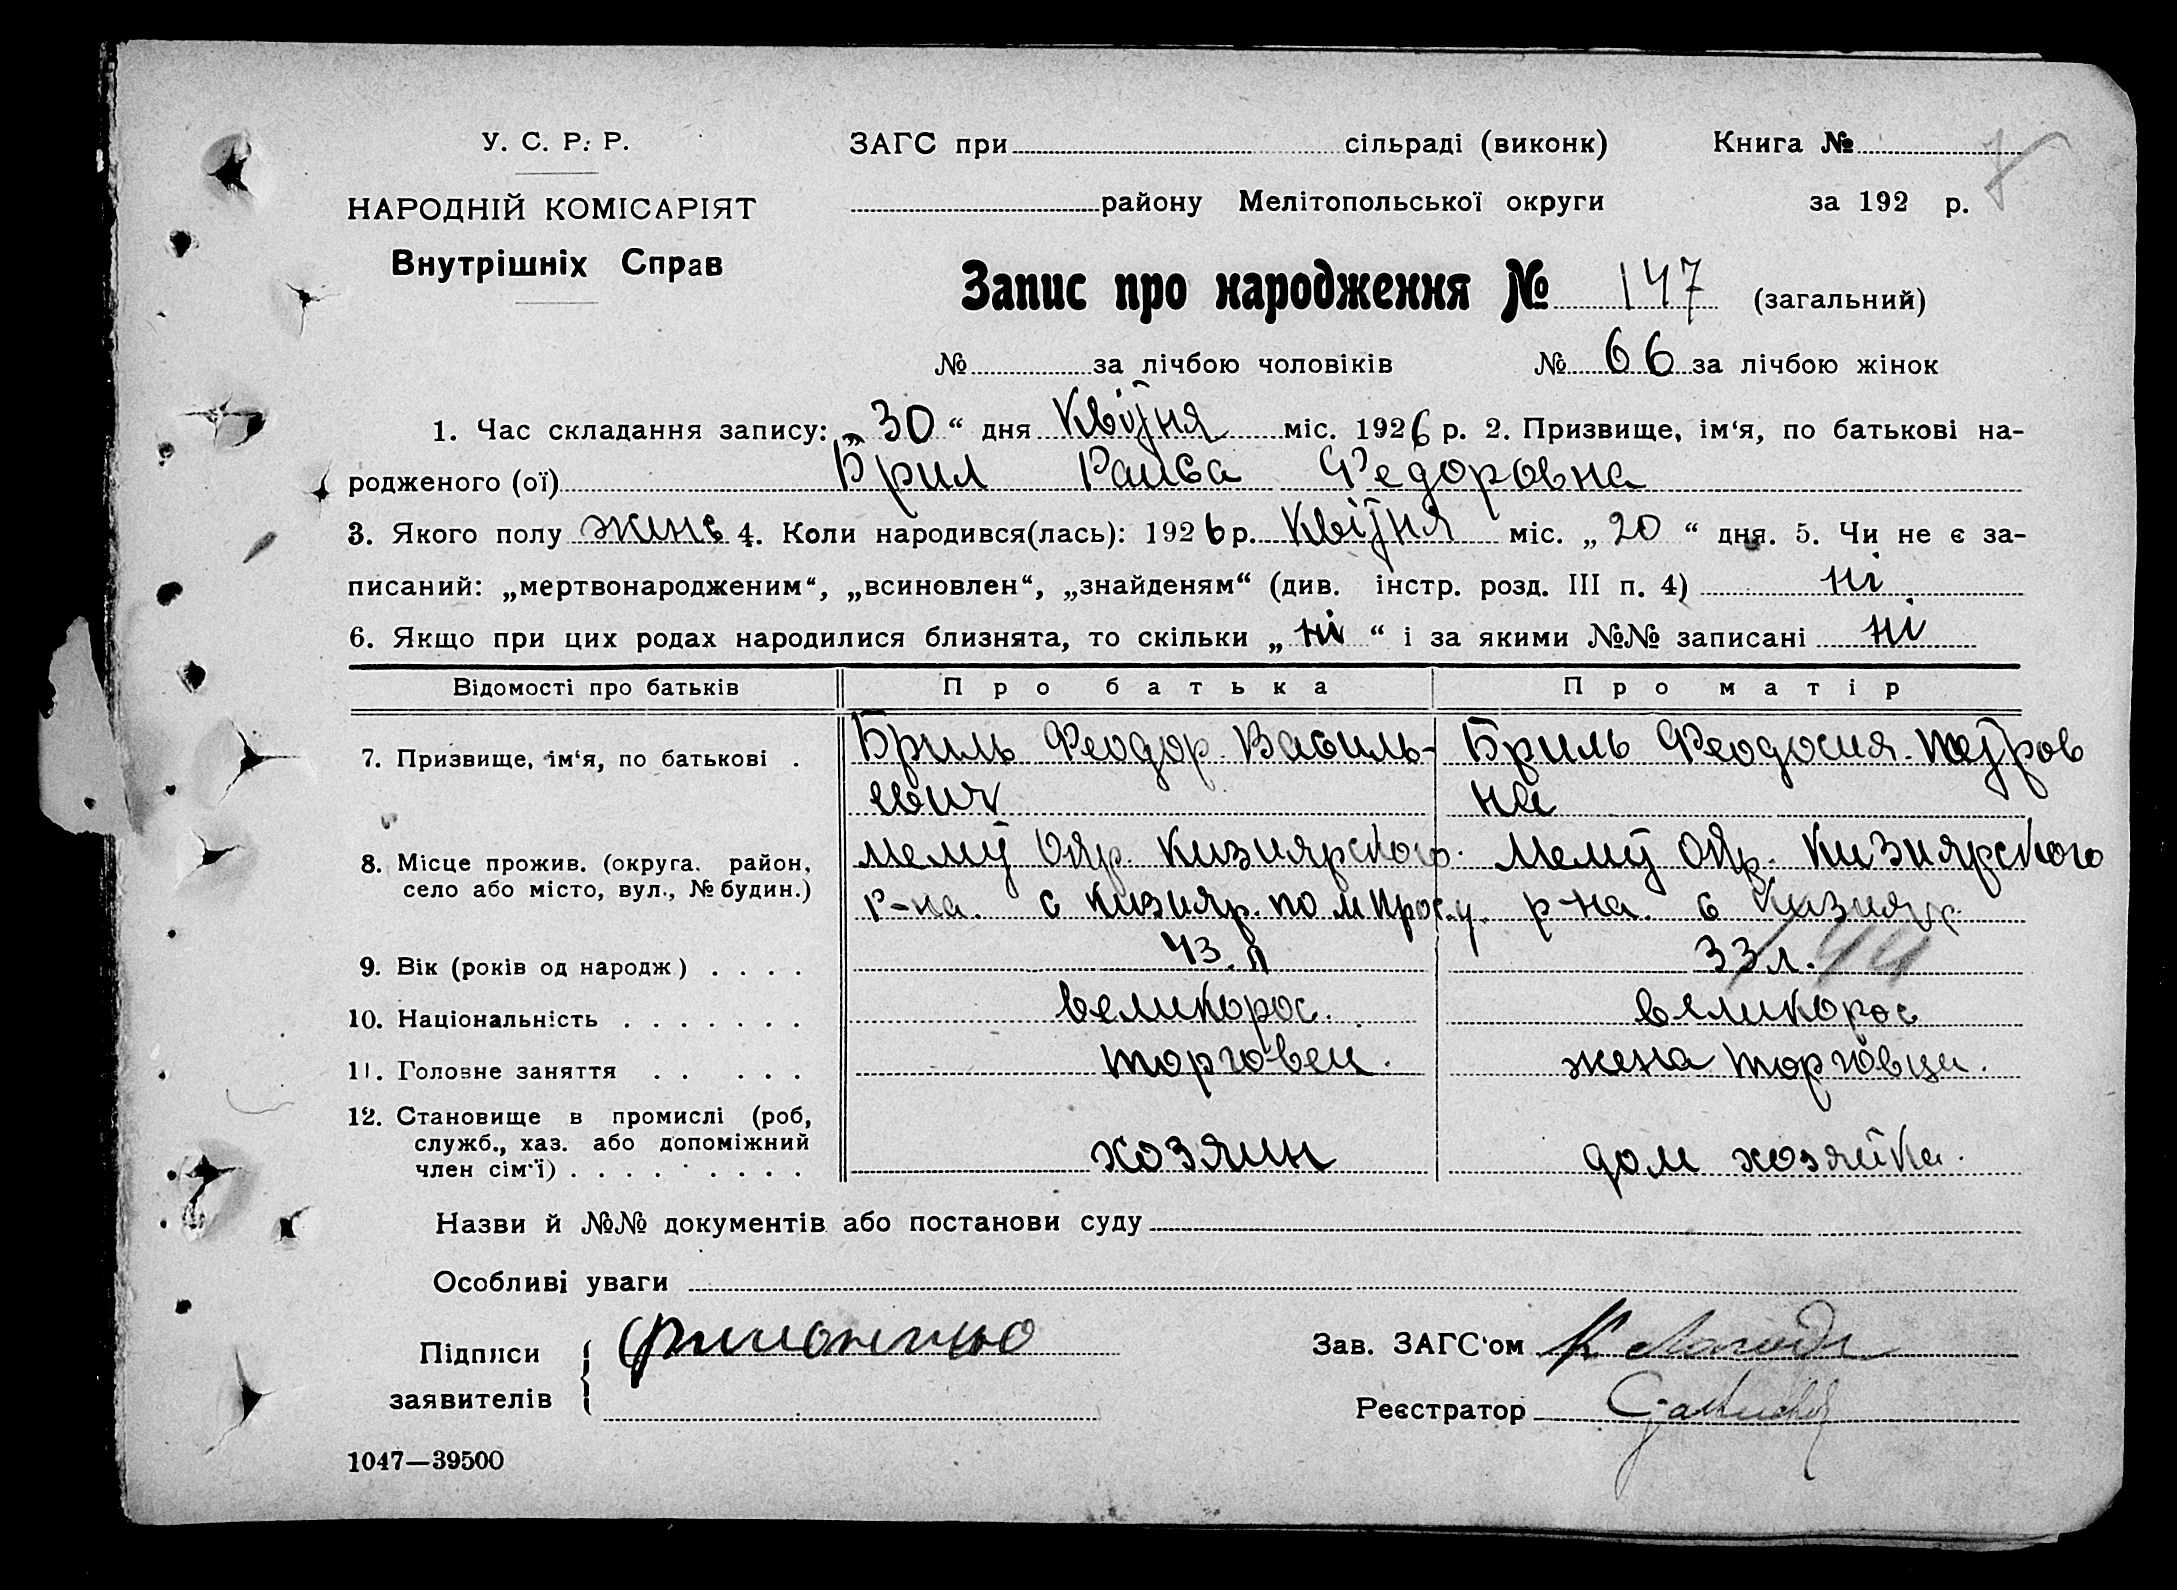 У. С. Р. Р.
НАРОДНІЙ КОМІСАРІЯТ
Внутрішніх Справ
ЗАГС при сільраді (виконк) Книга №
району Мелітопольської округи за 192 р.
Запис про народження № 147 (загальний)
№ за лічбою чоловіків № 66 за лічбою жінок
1. Час складання запису: „ 30 “ дня Квітня міс. 1926 р. 2. Призвище, ім‘я, по батькові на-
родженого (ої) Брил Раиса Федоровна
3. Якого полу женс 4. Коли народився(лась): 1926 р. Квітня міс. „ 20 “ дня. 5. Чи не є за-
писаний: „мертвонародженим“, „всиновлен“, „знайденям“ (див. інстр. розд. III п. 4) ні
6. Якщо при цих родах народилися близнята, то скільки „ ні “ і за якими №№ записані ні
Відомості про батьків Про батька Про матір
7. Призвище, ім‘я, по батькові . Бриль Феодор Василь- Бриль Феодосия Петров
евич на
8. Місце прожив. (округа. район, Мелит Окр. Кизиярского Мелит Окр. Кизиярского
село або місто, вул., № будин.) р-на. с Кизияр. р-на. с Кизияр.
9. Вік (років од народж) . . . . 43. л 33 л. 44
10. Національність . . . . . . . великорос. великорос
11. Головне заняття . . . . . торговец. жена торговца.
12. Становище в промислі (роб,
служб., хаз. або допоміжний
член сім‘ї) . . . . . . . . . хозяин дом хозяйка.
Назви й №№ документів або постанови суду
Особливі уваги
Підписи
заявителів
Зав. ЗАГС‘ом
Реєстратор
1047—39500